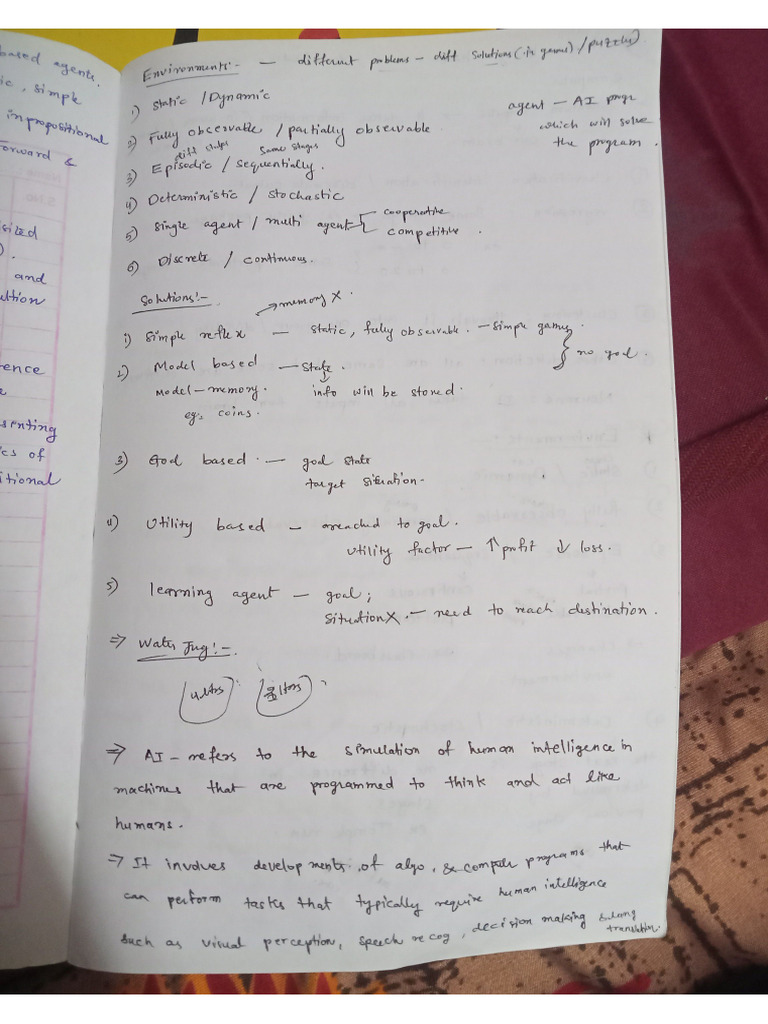 based agents.
ic, simple
in propositional
Forward &
sized
).
and
ution
rence
senting
cs of
itional
Environments:- — different problems - diff solutions (in games) / puzzles
agent - AI progr
which will solve
the program.
1) Static / Dynamic
2) Fully observable / partially observable
diff Same stages
3) Episodic / sequentially.
4) Deterministic / stochastic
5) Single agent / multi agent cooperative
competitive.
6) Discrete / continuous.
Solutions:-
memory X.
1) Simple reflex — static, fully observable. - simple games.
no goal.
2) Model based — State.
Model - memory. info will be stored.
eg:- coins.
3) Goal based. — goal state
target situation-
4) Utility based - reached to goal.
Utility factor - ↑ profit ↓ loss.
5) learning agent - goal;
Situation X. - need to reach destination.
⇒ Water Jug:-
4 ltrs 3 ltrs
⇒ AI - refers to the simulation of human intelligence in
machines that are programmed to think and act like
humans.
⇒ It involves developments of algo, & computer programs that
can perform tasks that typically require human intelligence
such as visual perception, speech recog, decision making & lang
translation.